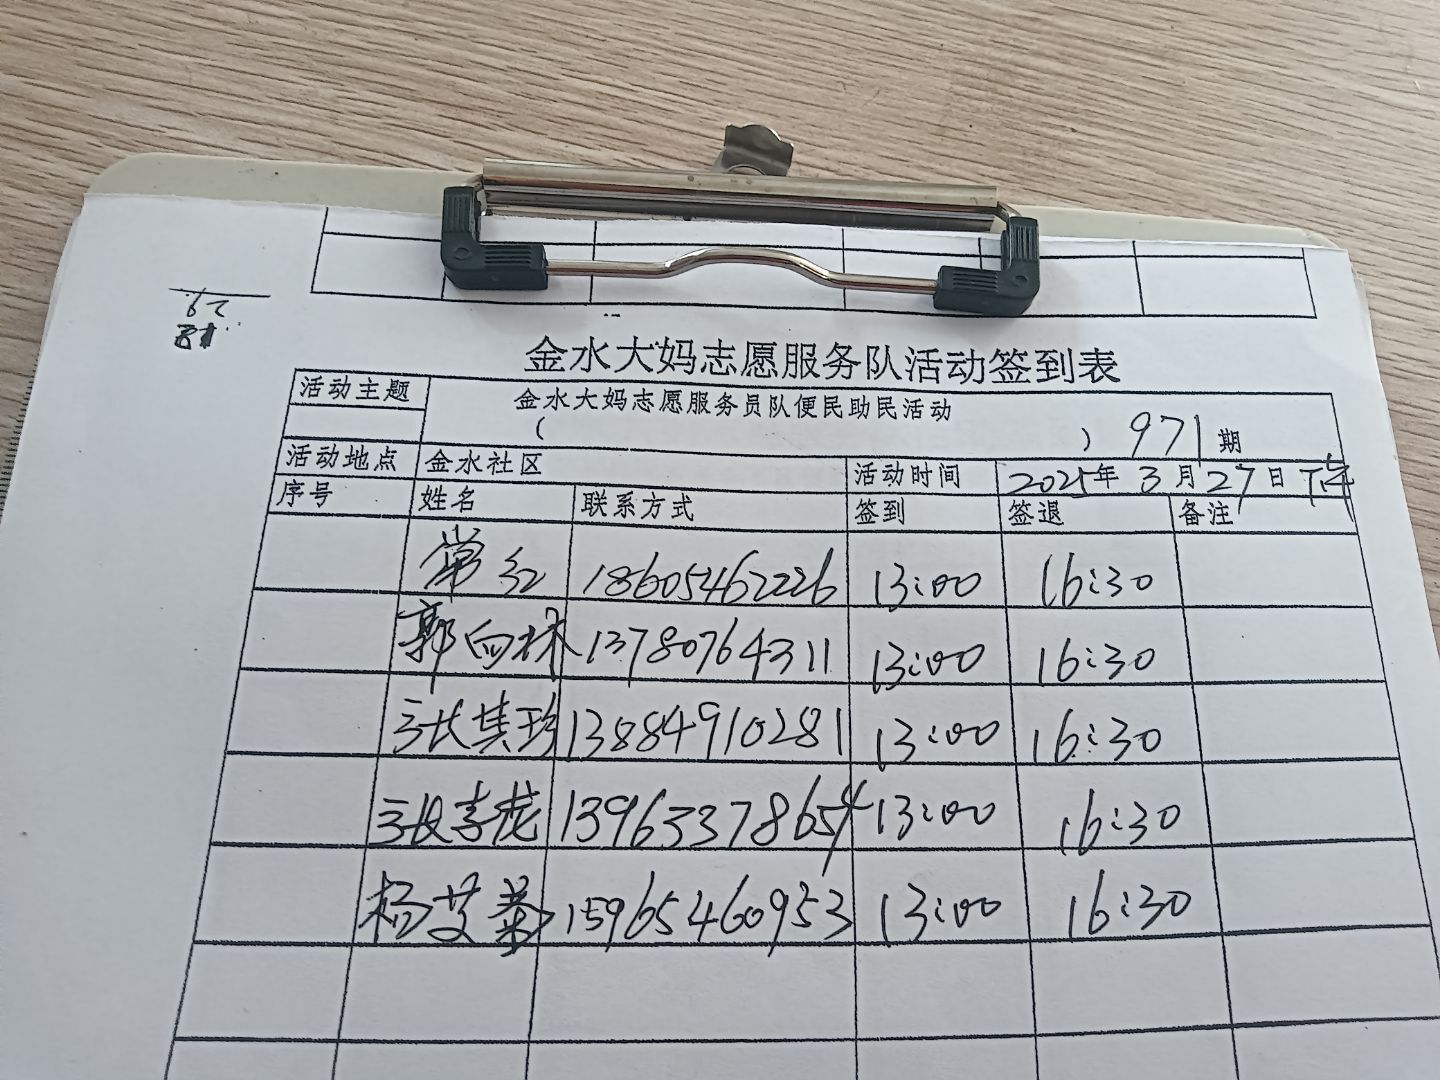 金水大妈志愿服务队活动签到表
活动主题 金水大妈志愿服务员队便民助民活动
( ) 971期
活动地点 金水社区 活动时间 2025年3月27日 下午
序号 姓名 联系方式 签到 签退 备注
常红 18605462226 13:00 16:30
郭向林 13780764311 13:00 16:30
张其珍 13884910281 13:00 16:30
张孝龙 13963378654 13:00 16:30
杨艾菊 15965460953 13:00 16:30